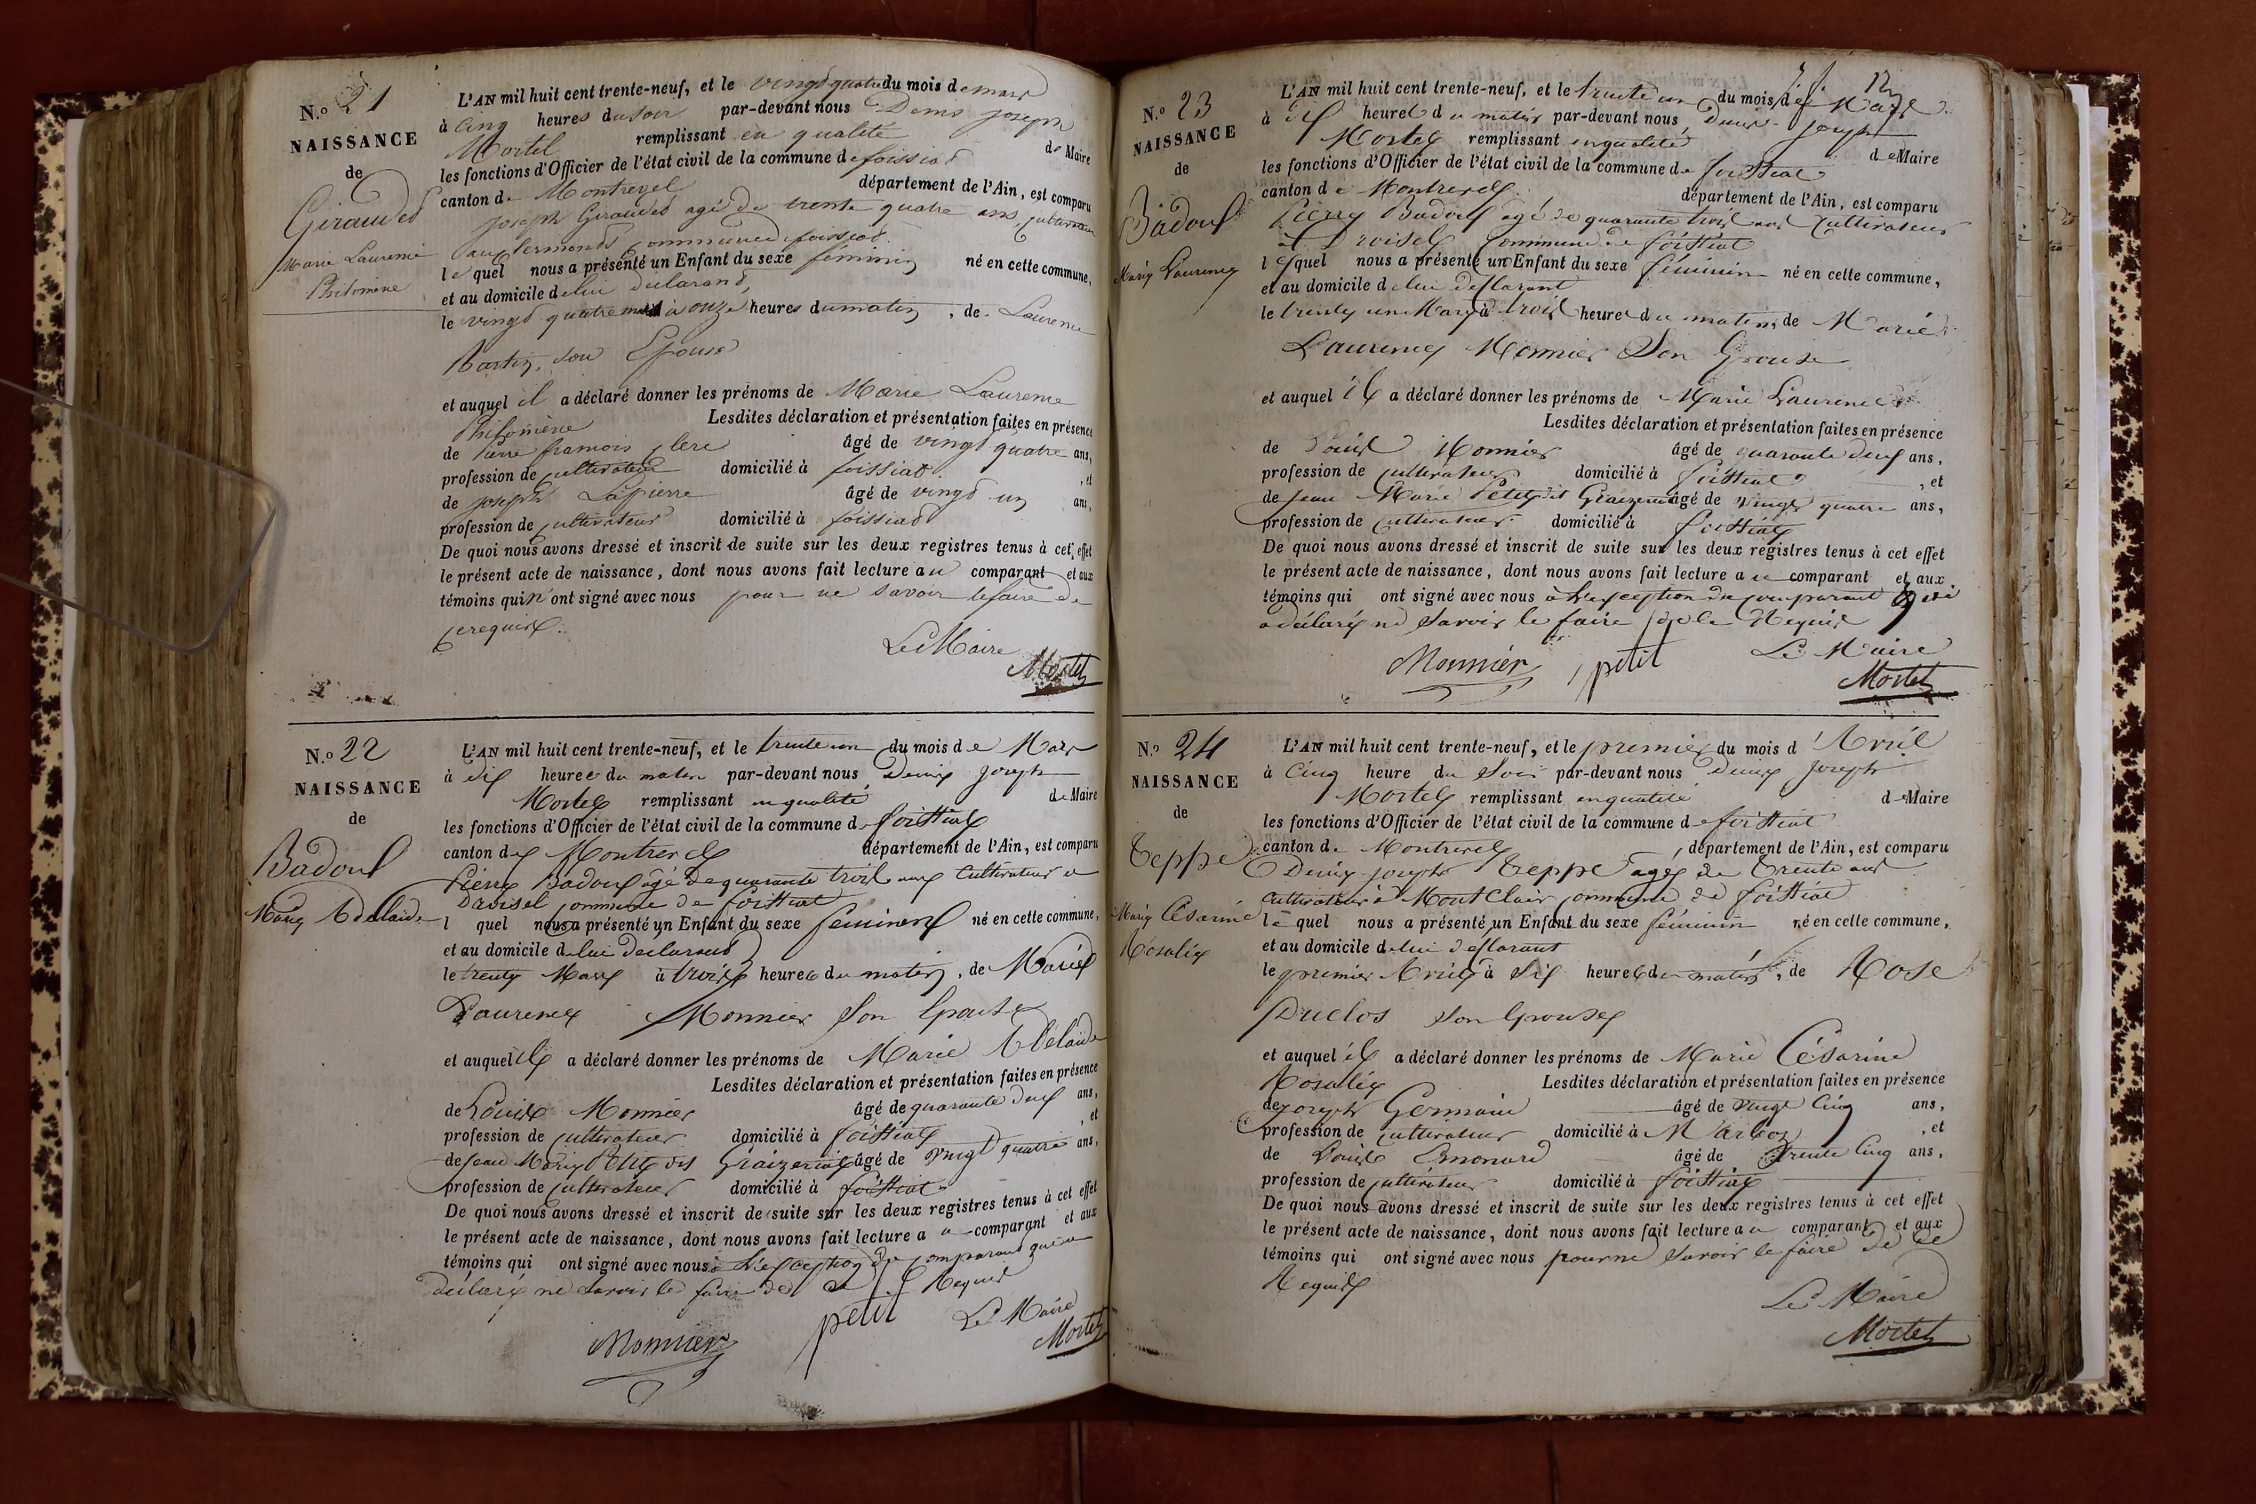 N.o 21
NAISSANCE
de
Giraudet
Marie Laurence
Philomène
L'AN mil huit cent trente-neuf, et le vingt quatre du mois de mars
à Cinq heures du soir par-devant nous Denis joseph
Mortel remplissant en qualité de Maire
les fonctions d'Officier de l'état civil de la commune de foissiat
canton de Montrevel département de l'Ain, est comparu
joseph Giraudet agé de trente quatre ans, cultivateur
aux fermonds commune de foissiat
le quel nous a présenté un Enfant du sexe féminin né en cette commune,
et au domicile de lui déclarant,
le vingt quatre mars à onze heures du matin, de Laurence
son Epouse
et auquel il a déclaré donner les prénoms de Marie Laurence
Philomène Lesdites déclaration et présentation faites en présence
de Pierre françois clerc âgé de vingt quatre ans,
profession de cultivateur domicilié à foissiat, et
de joseph Lapierre âgé de vingt un ans,
profession de cultivateur domicilié à foissiat
De quoi nous avons dressé et inscrit de suite sur les deux registres tenus à cet effet
le présent acte de naissance, dont nous avons fait lecture au comparant et aux
témoins qui n'ont signé avec nous pour ne savoir le faire de
ce requis.
Le Maire
Mortel
N.o 22
NAISSANCE
de
Badoul
Marie Adelaide
L'AN mil huit cent trente-neuf, et le trente un du mois de Mars
à dix heures du matin par-devant nous Denis joseph
Mortel remplissant en qualité de Maire
les fonctions d'Officier de l'état civil de la commune de foissiat
canton de Montrevel département de l'Ain, est comparu
Pierre Badoul âgé de quarante trois ans Cultivateur à
Davisel commune de foissiat
l quel nous a présenté un Enfant du sexe feminin né en cette commune,
et au domicile de lui declarant
le trente Mars à trois heures du matin, de Marie
Laurence Monnier Son Epouse
et auquel il a déclaré donner les prénoms de Marie Adélaïde
Lesdites déclaration et présentation faites en présence
de Louis Monnier âgé de quarante deux ans,
profession de cultivateur domicilié à foissiat, et
de jean Marie Petit dit Graizeriat âgé de vingt quatre ans,
profession de cultivateur domicilié à foissiat
De quoi nous avons dressé et inscrit de suite sur les deux registres tenus à cet effet
le présent acte de naissance, dont nous avons fait lecture au comparant et aux
témoins qui ont signé avec nous à L'exception du comparant qui a
déclaré ne savoir le faire de ce Requis
Le Maire
Monnier petit Mortel
12
N.o 23
NAISSANCE
de
Badoul
Marie Laurence
L'AN mil huit cent trente-neuf, et le trente un du mois de Mars
à dix heures du matin par-devant nous Denis joseph
Mortel remplissant en qualité de Maire
les fonctions d'Officier de l'état civil de la commune de foissiat
canton de Montrevel département de l'Ain, est comparu
Pierre Badoul âgé de quarante trois ans Cultivateur
à Davisel Commune de foissiat
le quel nous a présenté un Enfant du sexe féminin né en cette commune,
et au domicile de lui déclarant
le trente un Mars à trois heures du matin, de Marie
Laurence Monnier Son Epouse
et auquel il a déclaré donner les prénoms de Marie Laurence
Lesdites déclaration et présentation faites en présence
de Louis Monnier âgé de quarante deux ans,
profession de cultivateur domicilié à foissiat, et
de jean Marie Petit dit Graizeriat âgé de vingt quatre ans,
profession de cultivateur domicilié à foissiat
De quoi nous avons dressé et inscrit de suite sur les deux registres tenus à cet effet
le présent acte de naissance, dont nous avons fait lecture au comparant et aux
témoins qui ont signé avec nous à L'exception du comparant qui
a déclaré ne Savoir le faire de ce Requis
Le Maire
Monnier petit Mortel
N.o 24
NAISSANCE
de
Teppe
Marie Césarine
Rosalie
L'AN mil huit cent trente-neuf, et le premier du mois d'Avril
à Cinq heure du Soir par-devant nous Denis joseph
Mortel remplissant en qualité de Maire
les fonctions d'Officier de l'état civil de la commune de foissiat
canton de Montrevel, département de l'Ain, est comparu
Denis joseph Teppe agé de Trente ans
Cultivateur à Mont Clair commune de foissiat
le quel nous a présenté un Enfant du sexe féminin né en cette commune,
et au domicile de lui déclarant
le premier Avril à Six heures du matin, de Rose
Duclos Son Epouse
et auquel il a déclaré donner les prénoms de Marie Césarine
Rosalie Lesdites déclaration et présentation faites en présence
de joseph Germain âgé de vingt Cinq ans,
profession de cultivateur domicilié à Marboz, et
de Louis Emonard âgé de Trente Cinq ans,
profession de cultivateur domicilié à foissiat
De quoi nous avons dressé et inscrit de suite sur les deux registres tenus à cet effet
le présent acte de naissance, dont nous avons fait lecture au comparant et aux
témoins qui ont signé avec nous pour ne Savoir le faire de ce
Requis
Le Maire
Mortel